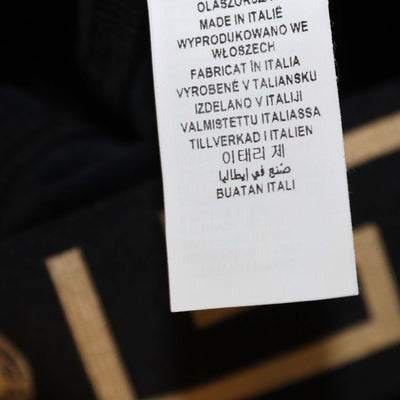 OLASZORSZ
MADE IN ITALIË
WYPRODUKOWANO WE
WŁOSZECH
FABRICAT ÎN ITALIA
VYROBENÉ V TALIANSKU
IZDELANO V ITALIJI
VALMISTETTU ITALIASSA
TILLVERKAD I ITALIEN
이태리 제
صُنع في إيطاليا
BUATAN ITALI